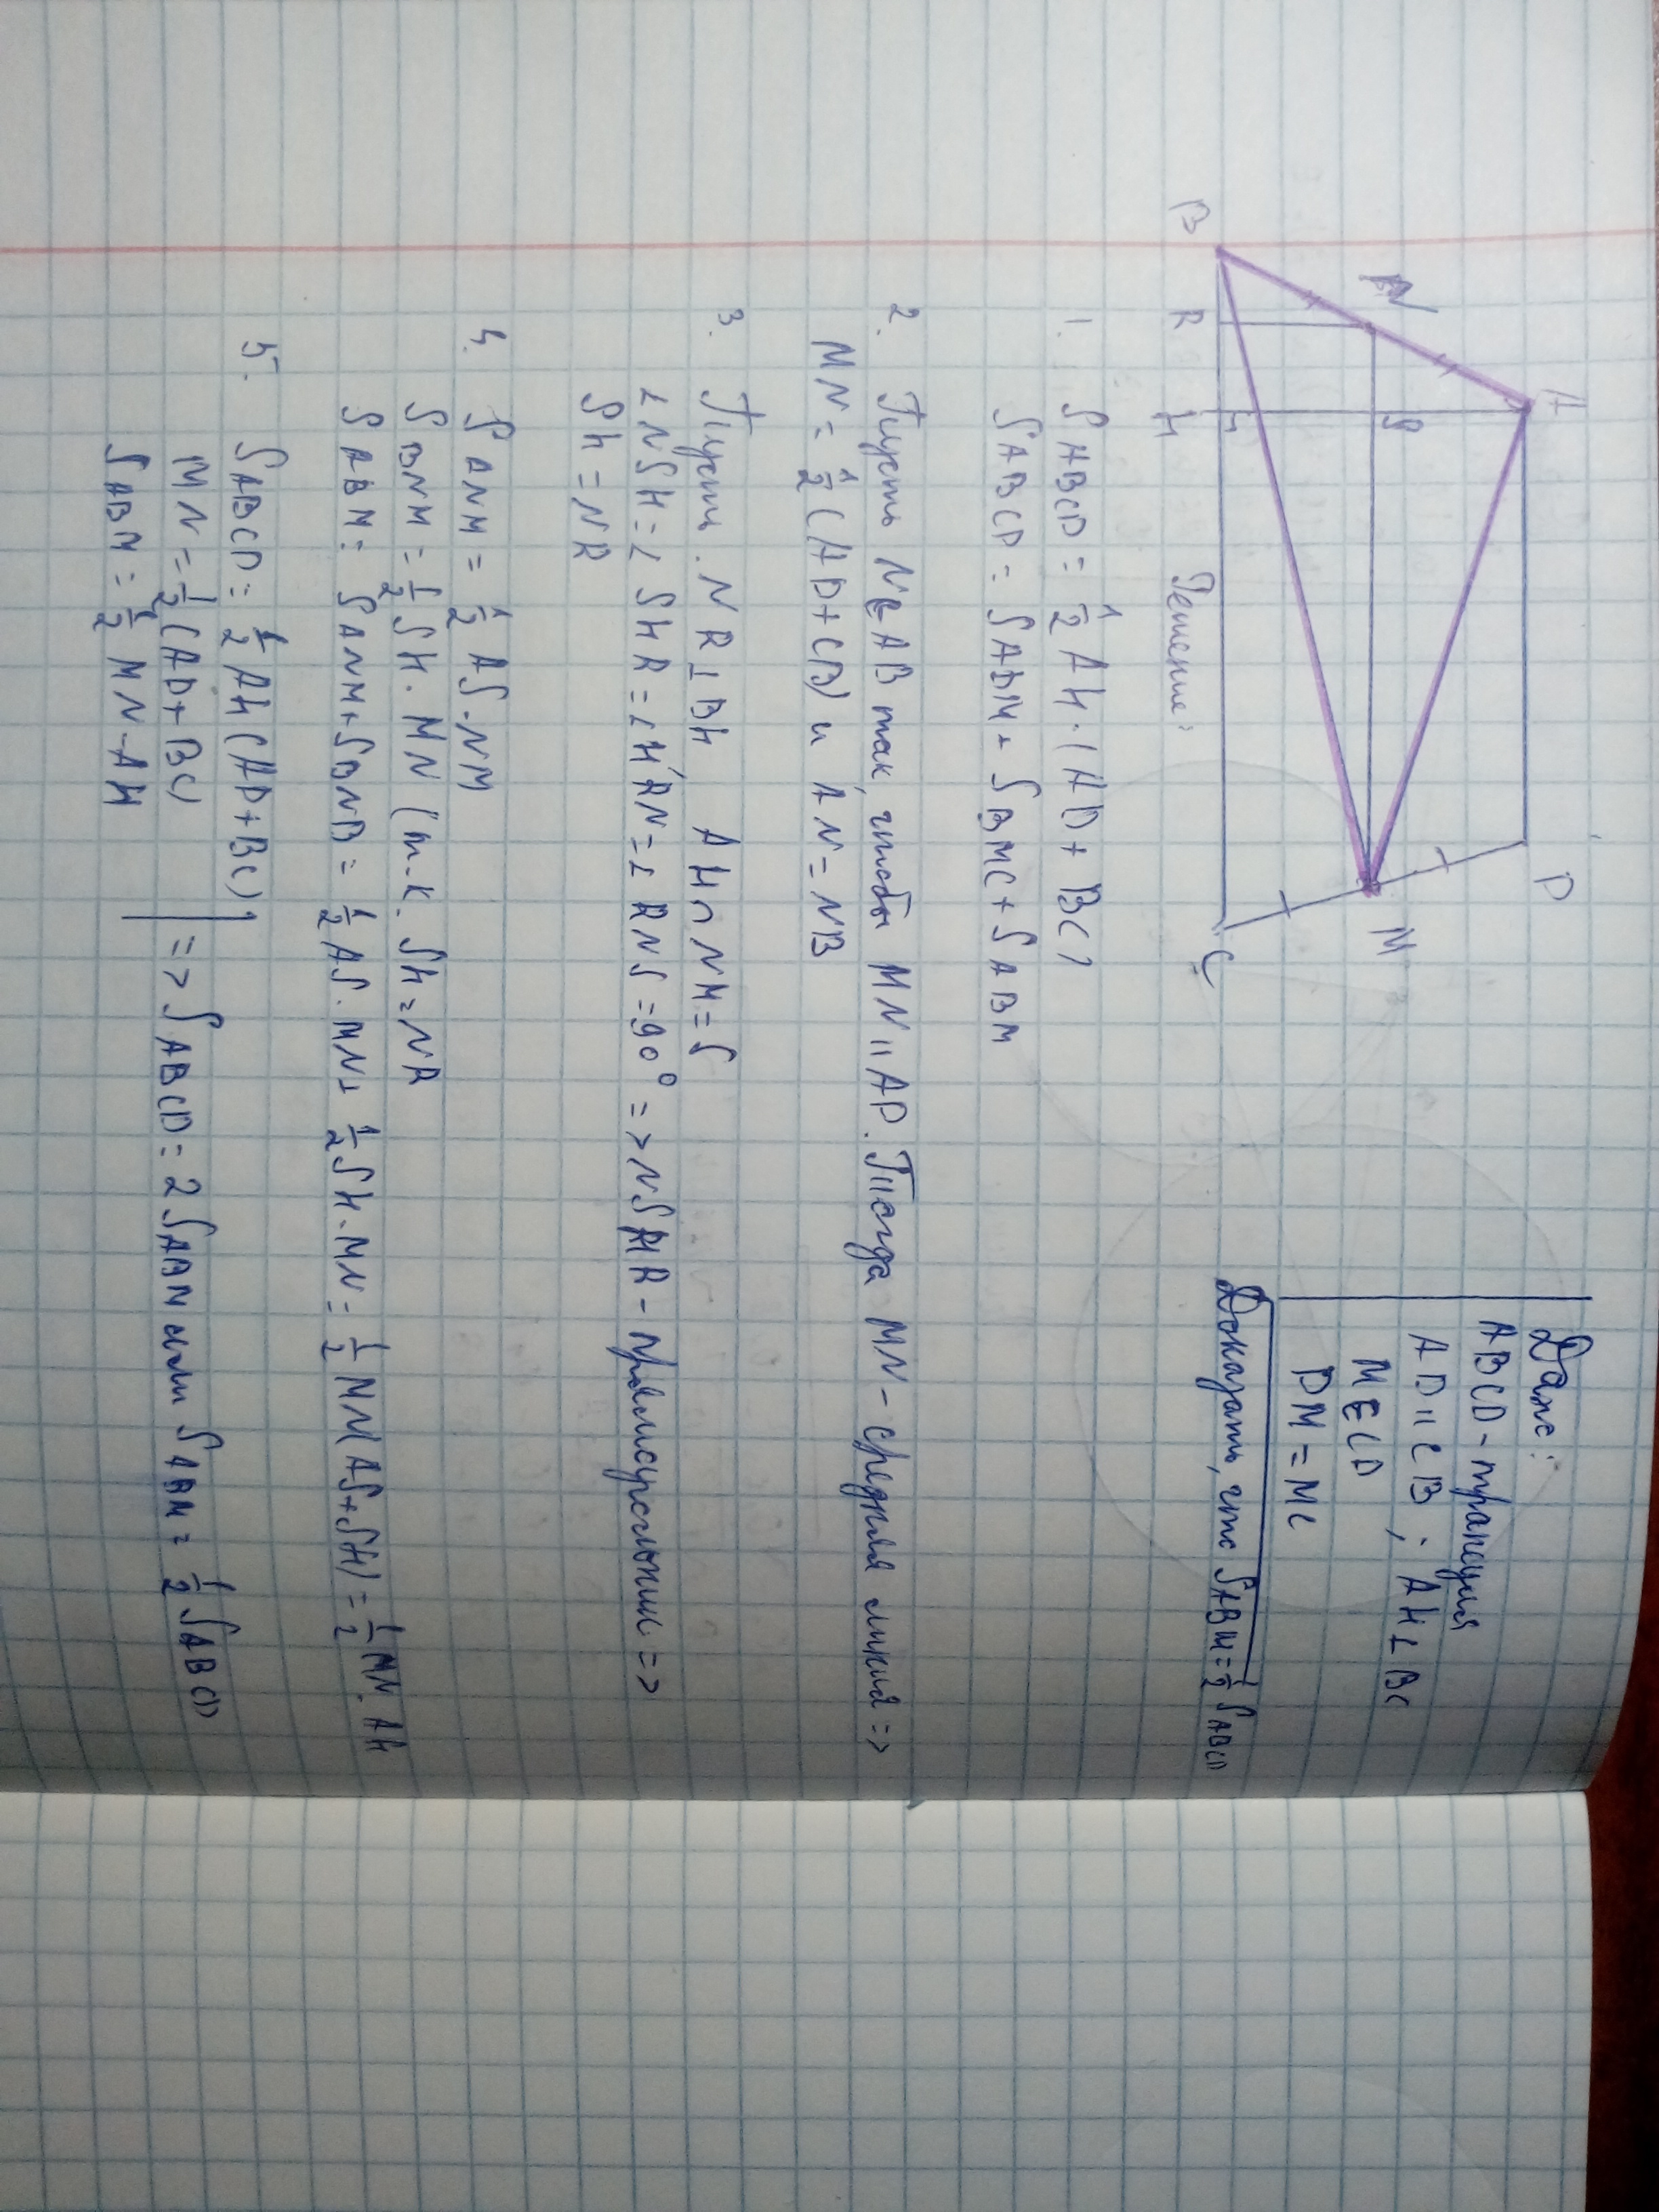 A
D
N
S
M
B
R
H
C
Дано:
ABCD - трапеция
AD || CB ; AH ⊥ BC
M ∈ CD
DM = MC
Доказать, что S ABM = 1/2 S ABCD
Решение:
1. S ABCD = 1/2 AH · (AD + BC)
S ABCD = S ADM + S BMC + S ABM
2. Пусть N ∈ AB так, чтобы MN || AD. Тогда MN - средняя линия =>
MN = 1/2 (AD + CB) и AN = NB
3. Пусть NR ⊥ BH AH ∩ NM = S
∠ NSH = ∠ SHR = ∠ HRN = ∠ RNS = 90° => NSHR - прямоугольник =>
SH = NR
4. S ANM = 1/2 AS · NM
S BNM = 1/2 SH · MN (т.к. SH = NR
S ABM = S ANM + S BNB = 1/2 AS · MN + 1/2 SH · MN = 1/2 MN (AS + SH) = 1/2 MN · AH
5. S ABCD = 1/2 AH (AD + BC)
MN = 1/2 (AD + BC) => S ABCD = 2 S ABM или S ABM = 1/2 S ABCD
S ABM = 1/2 MN · AH